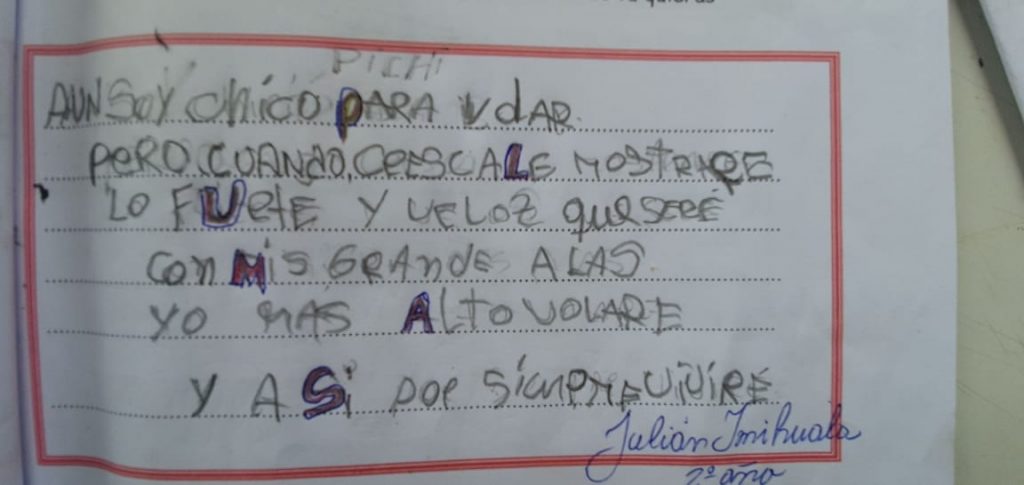 quieras
PICHI
AUN SOY chico PARA VOLAR
PERO CUANDO CRESCA LE MOSTRARE
LO FUeRtE Y VELOZ QUE SERE
CON MIS GRANDE ALAS
YO MAS ALTO VOLARE
Y ASi POR SiEMPRE ViViRE
Julián Imihuala
2º año